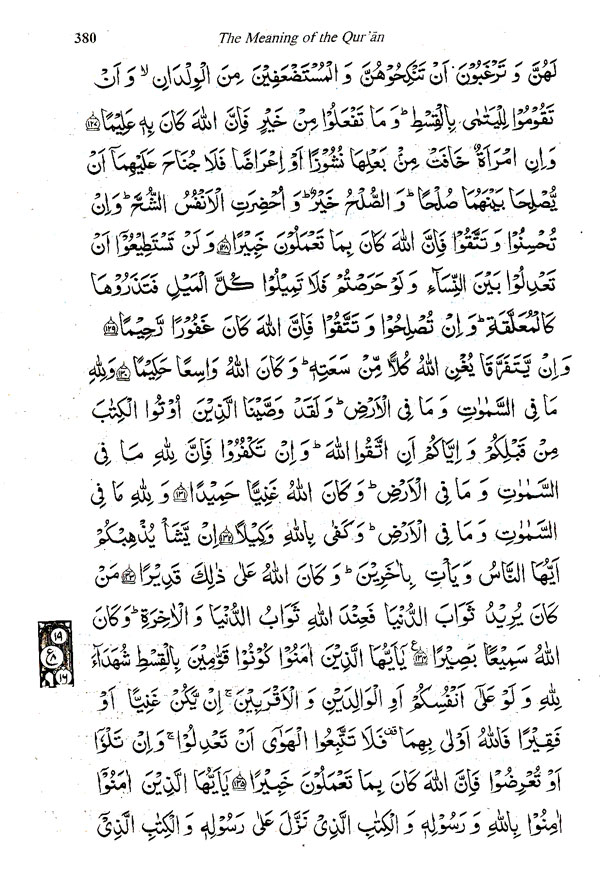 380
The Meaning of the Qur'ān
لَهُنَّ وَ تَرْغَبُوْنَ اَنْ تَنْكِحُوْهُنَّ وَ الْمُسْتَضْعَفِيْنَ مِنَ الْوِلْدَانِ ۙ وَ اَنْ
تَقُوْمُوْا لِلْيَتٰمٰى بِالْقِسْطِ ؕ وَ مَا تَفْعَلُوْا مِنْ خَيْرٍ فَاِنَّ اللّٰهَ كَانَ بِهٖ عَلِيْمًا ﴿۱۲۷﴾
وَ اِنِ امْرَاَةٌ خَافَتْ مِنْۢ بَعْلِهَا نُشُوْزًا اَوْ اِعْرَاضًا فَلَا جُنَاحَ عَلَيْهِمَاۤ اَنْ
يُّصْلِحَا بَيْنَهُمَا صُلْحًا ؕ وَ الصُّلْحُ خَيْرٌ ؕ وَ اُحْضِرَتِ الْاَنْفُسُ الشُّحَّ ؕ وَ اِنْ
تُحْسِنُوْا وَ تَتَّقُوْا فَاِنَّ اللّٰهَ كَانَ بِمَا تَعْمَلُوْنَ خَبِيْرًا ﴿۱۲۸﴾ وَ لَنْ تَسْتَطِيْعُوْۤا اَنْ
تَعْدِلُوْا بَيْنَ النِّسَآءِ وَ لَوْ حَرَصْتُمْ فَلَا تَمِيْلُوْا كُلَّ الْمَيْلِ فَتَذَرُوْهَا
كَالْمُعَلَّقَةِ ؕ وَ اِنْ تُصْلِحُوْا وَ تَتَّقُوْا فَاِنَّ اللّٰهَ كَانَ غَفُوْرًا رَّحِيْمًا ﴿۱۲۹﴾
وَ اِنْ يَّتَفَرَّقَا يُغْنِ اللّٰهُ كُلًّا مِّنْ سَعَتِهٖ ؕ وَ كَانَ اللّٰهُ وَاسِعًا حَكِيْمًا ﴿۱۳۰﴾ وَ لِلّٰهِ
مَا فِى السَّمٰوٰتِ وَ مَا فِى الْاَرْضِ ؕ وَ لَقَدْ وَصَّيْنَا الَّذِيْنَ اُوْتُوا الْكِتٰبَ
مِنْ قَبْلِكُمْ وَ اِيَّاكُمْ اَنِ اتَّقُوا اللّٰهَ ؕ وَ اِنْ تَكْفُرُوْا فَاِنَّ لِلّٰهِ مَا فِى
السَّمٰوٰتِ وَ مَا فِى الْاَرْضِ ؕ وَ كَانَ اللّٰهُ غَنِيًّا حَمِيْدًا ﴿۱۳۱﴾ وَ لِلّٰهِ مَا فِى
السَّمٰوٰتِ وَ مَا فِى الْاَرْضِ ؕ وَ كَفٰى بِاللّٰهِ وَكِيْلًا ﴿۱۳۲﴾ اِنْ يَّشَاْ يُذْهِبْكُمْ
اَيُّهَا النَّاسُ وَ يَاْتِ بِاٰخَرِيْنَ ؕ وَ كَانَ اللّٰهُ عَلٰى ذٰلِكَ قَدِيْرًا ﴿۱۳۳﴾ مَنْ
كَانَ يُرِيْدُ ثَوَابَ الدُّنْيَا فَعِنْدَ اللّٰهِ ثَوَابُ الدُّنْيَا وَ الْاٰخِرَةِ ؕ وَ كَانَ
اللّٰهُ سَمِيْعًۢا بَصِيْرًا ﴿۱۳۴﴾ ع يٰۤاَيُّهَا الَّذِيْنَ اٰمَنُوْا كُوْنُوْا قَوّٰمِيْنَ بِالْقِسْطِ شُهَدَآءَ
۱۹
ع ۸
۱۶
لِلّٰهِ وَ لَوْ عَلٰۤى اَنْفُسِكُمْ اَوِ الْوَالِدَيْنِ وَ الْاَقْرَبِيْنَ ۚ اِنْ يَّكُنْ غَنِيًّا اَوْ
فَقِيْرًا فَاللّٰهُ اَوْلٰى بِهِمَا ۫ فَلَا تَتَّبِعُوا الْهَوٰۤى اَنْ تَعْدِلُوْا ۚ وَ اِنْ تَلْوٗۤا
اَوْ تُعْرِضُوْا فَاِنَّ اللّٰهَ كَانَ بِمَا تَعْمَلُوْنَ خَبِيْرًا ﴿۱۳۵﴾ يٰۤاَيُّهَا الَّذِيْنَ اٰمَنُوْۤا
اٰمِنُوْا بِاللّٰهِ وَ رَسُوْلِهٖ وَ الْكِتٰبِ الَّذِىْ نَزَّلَ عَلٰى رَسُوْلِهٖ وَ الْكِتٰبِ الَّذِىْۤ